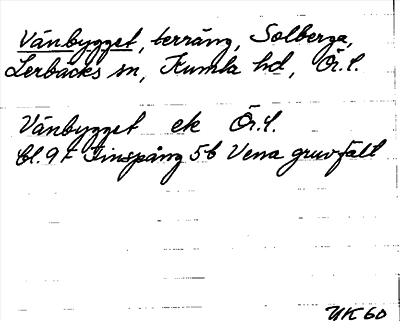 Vänbygget, terräng, Solberga,
Lerbäcks sn, Kumla hd, Ör.l.
Vänbygget ek Ör.l.
bl. 9F Finspång 5b Vena gruvfält
YK 60